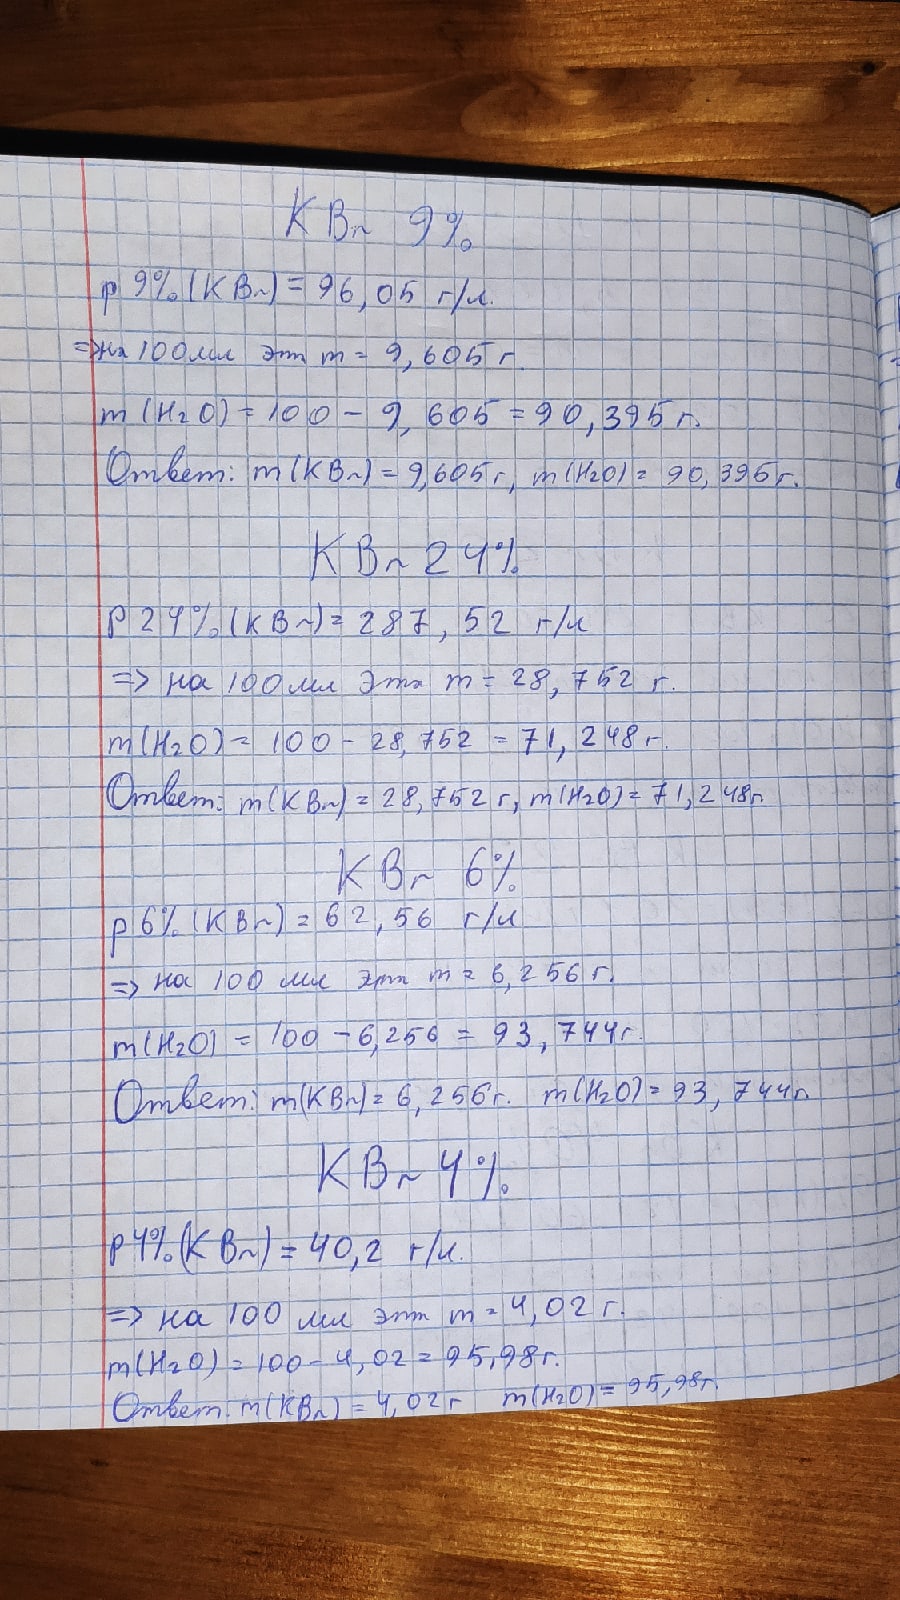 KBr 9%
p 9% (KBr) = 96,05 г/л.
=> на 100 мл это m = 9,605 г.
m (H2O) = 100 - 9,605 = 90,395 г.
Ответ: m (KBr) = 9,605 г, m (H2O) = 90,395 г.
KBr 24%
p 24% (KBr) = 287,52 г/л
=> на 100 мл это m = 28,752 г.
m (H2O) = 100 - 28,752 = 71,248 г.
Ответ: m (KBr) = 28,752 г, m (H2O) = 71,248 г
KBr 6%
p 6% (KBr) = 62,56 г/л
=> на 100 мл это m = 6,256 г.
m (H2O) = 100 - 6,256 = 93,744 г.
Ответ: m (KBr) = 6,256 г. m (H2O) = 93,744 г.
KBr 4%
p 4% (KBr) = 40,2 г/л.
=> на 100 мл это m = 4,02 г.
m (H2O) = 100 - 4,02 = 95,98 г.
Ответ: m (KBr) = 4,02 г m (H2O) = 95,98 г.